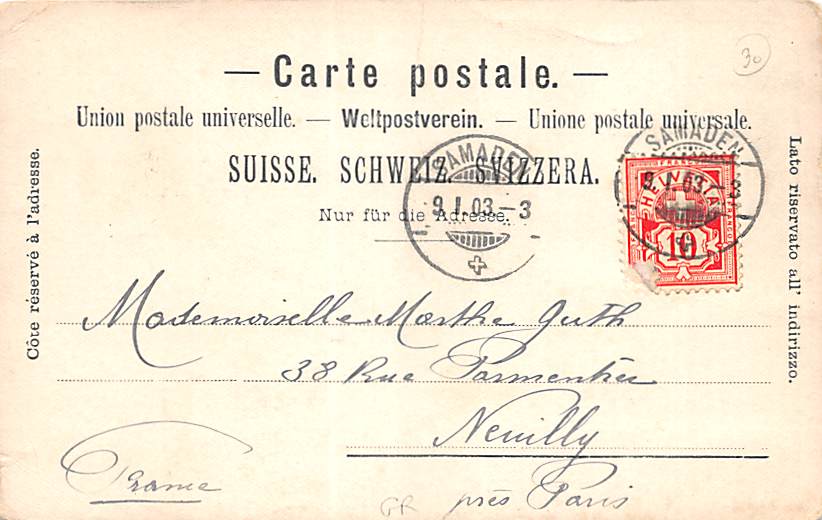 30
— Carte postale. —
Union postale universelle. — Weltpostverein. — Unione postale universale.
SUISSE. SCHWEIZ. SVIZZERA.
Nur für die Adresse.
Côté réservé à l'adresse.
Lato riservato all' indirizzo.
SAMADEN
9.I.03.–3
SAMADEN
9.I.03.–3
HELVETIA
FRANCO
10
Mademoiselle Marthe Guth
38 Rue Parmentier
Neuilly
près Paris
France
GR